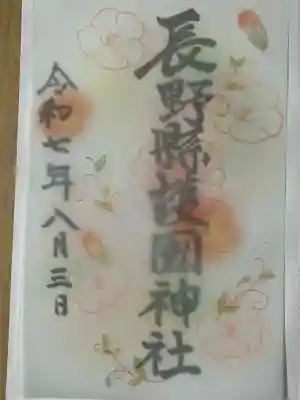 長野縣護國神社
令和七年八月三日